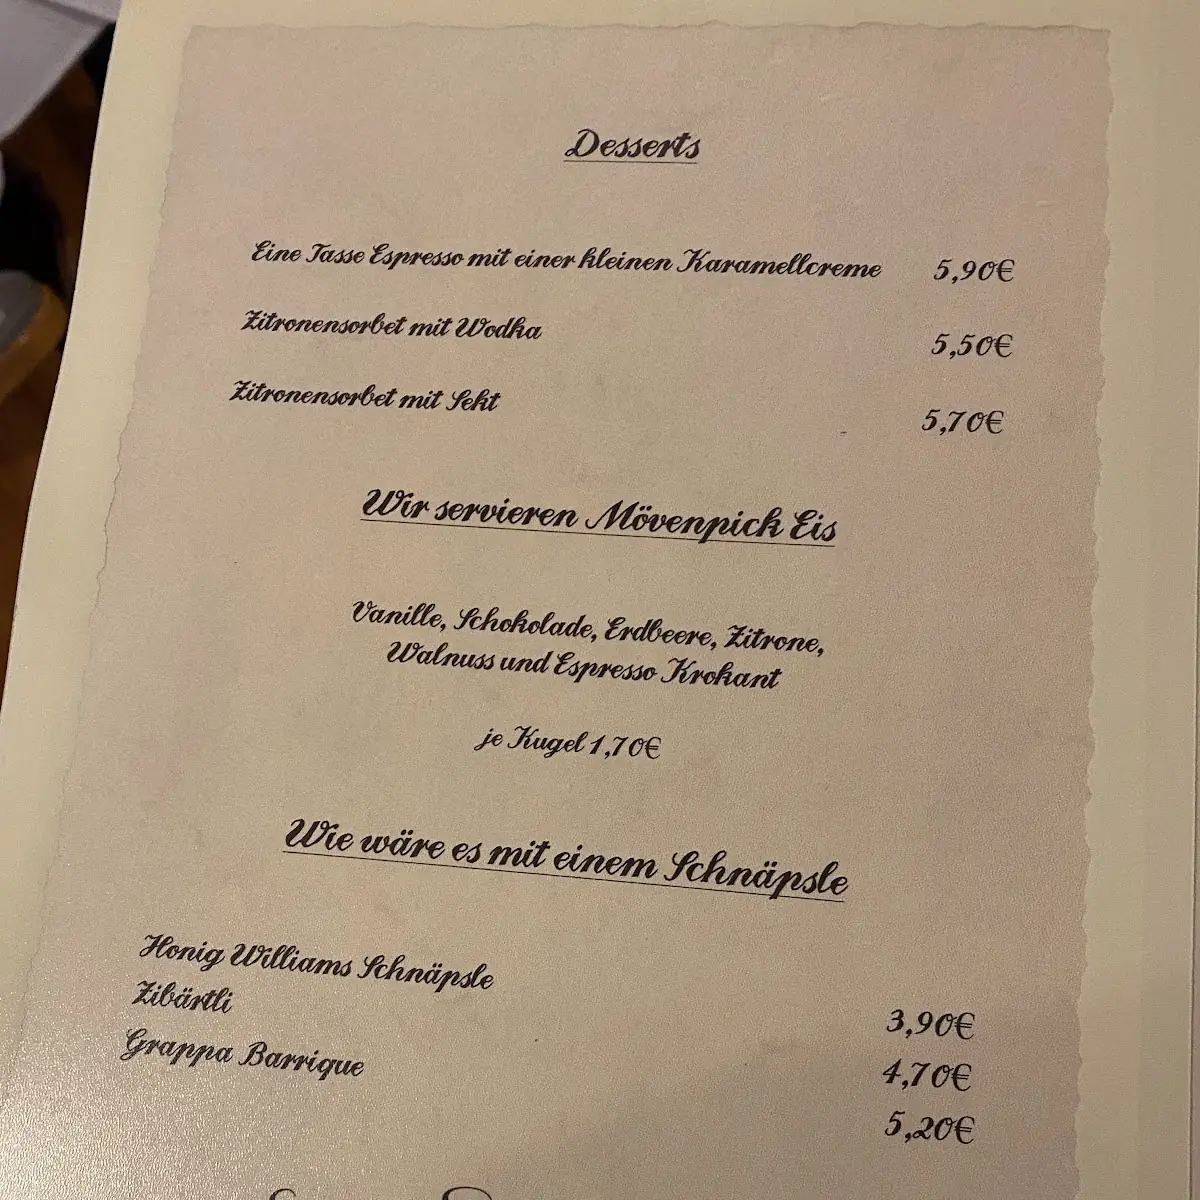 Desserts
Eine Tasse Espresso mit einer kleinen Karamellcreme 5,90€
Zitronensorbet mit Wodka 5,50€
Zitronensorbet mit Sekt 5,70€
Wir servieren Mövenpick Eis
Vanille, Schokolade, Erdbeere, Zitrone,
Walnuss und Espresso Krokant
je Kugel 1,70€
Wie wäre es mit einem Schnäpsle
Honig Williams Schnäpsle 3,90€
Zibärtli 4,70€
Grappa Barrique 5,20€